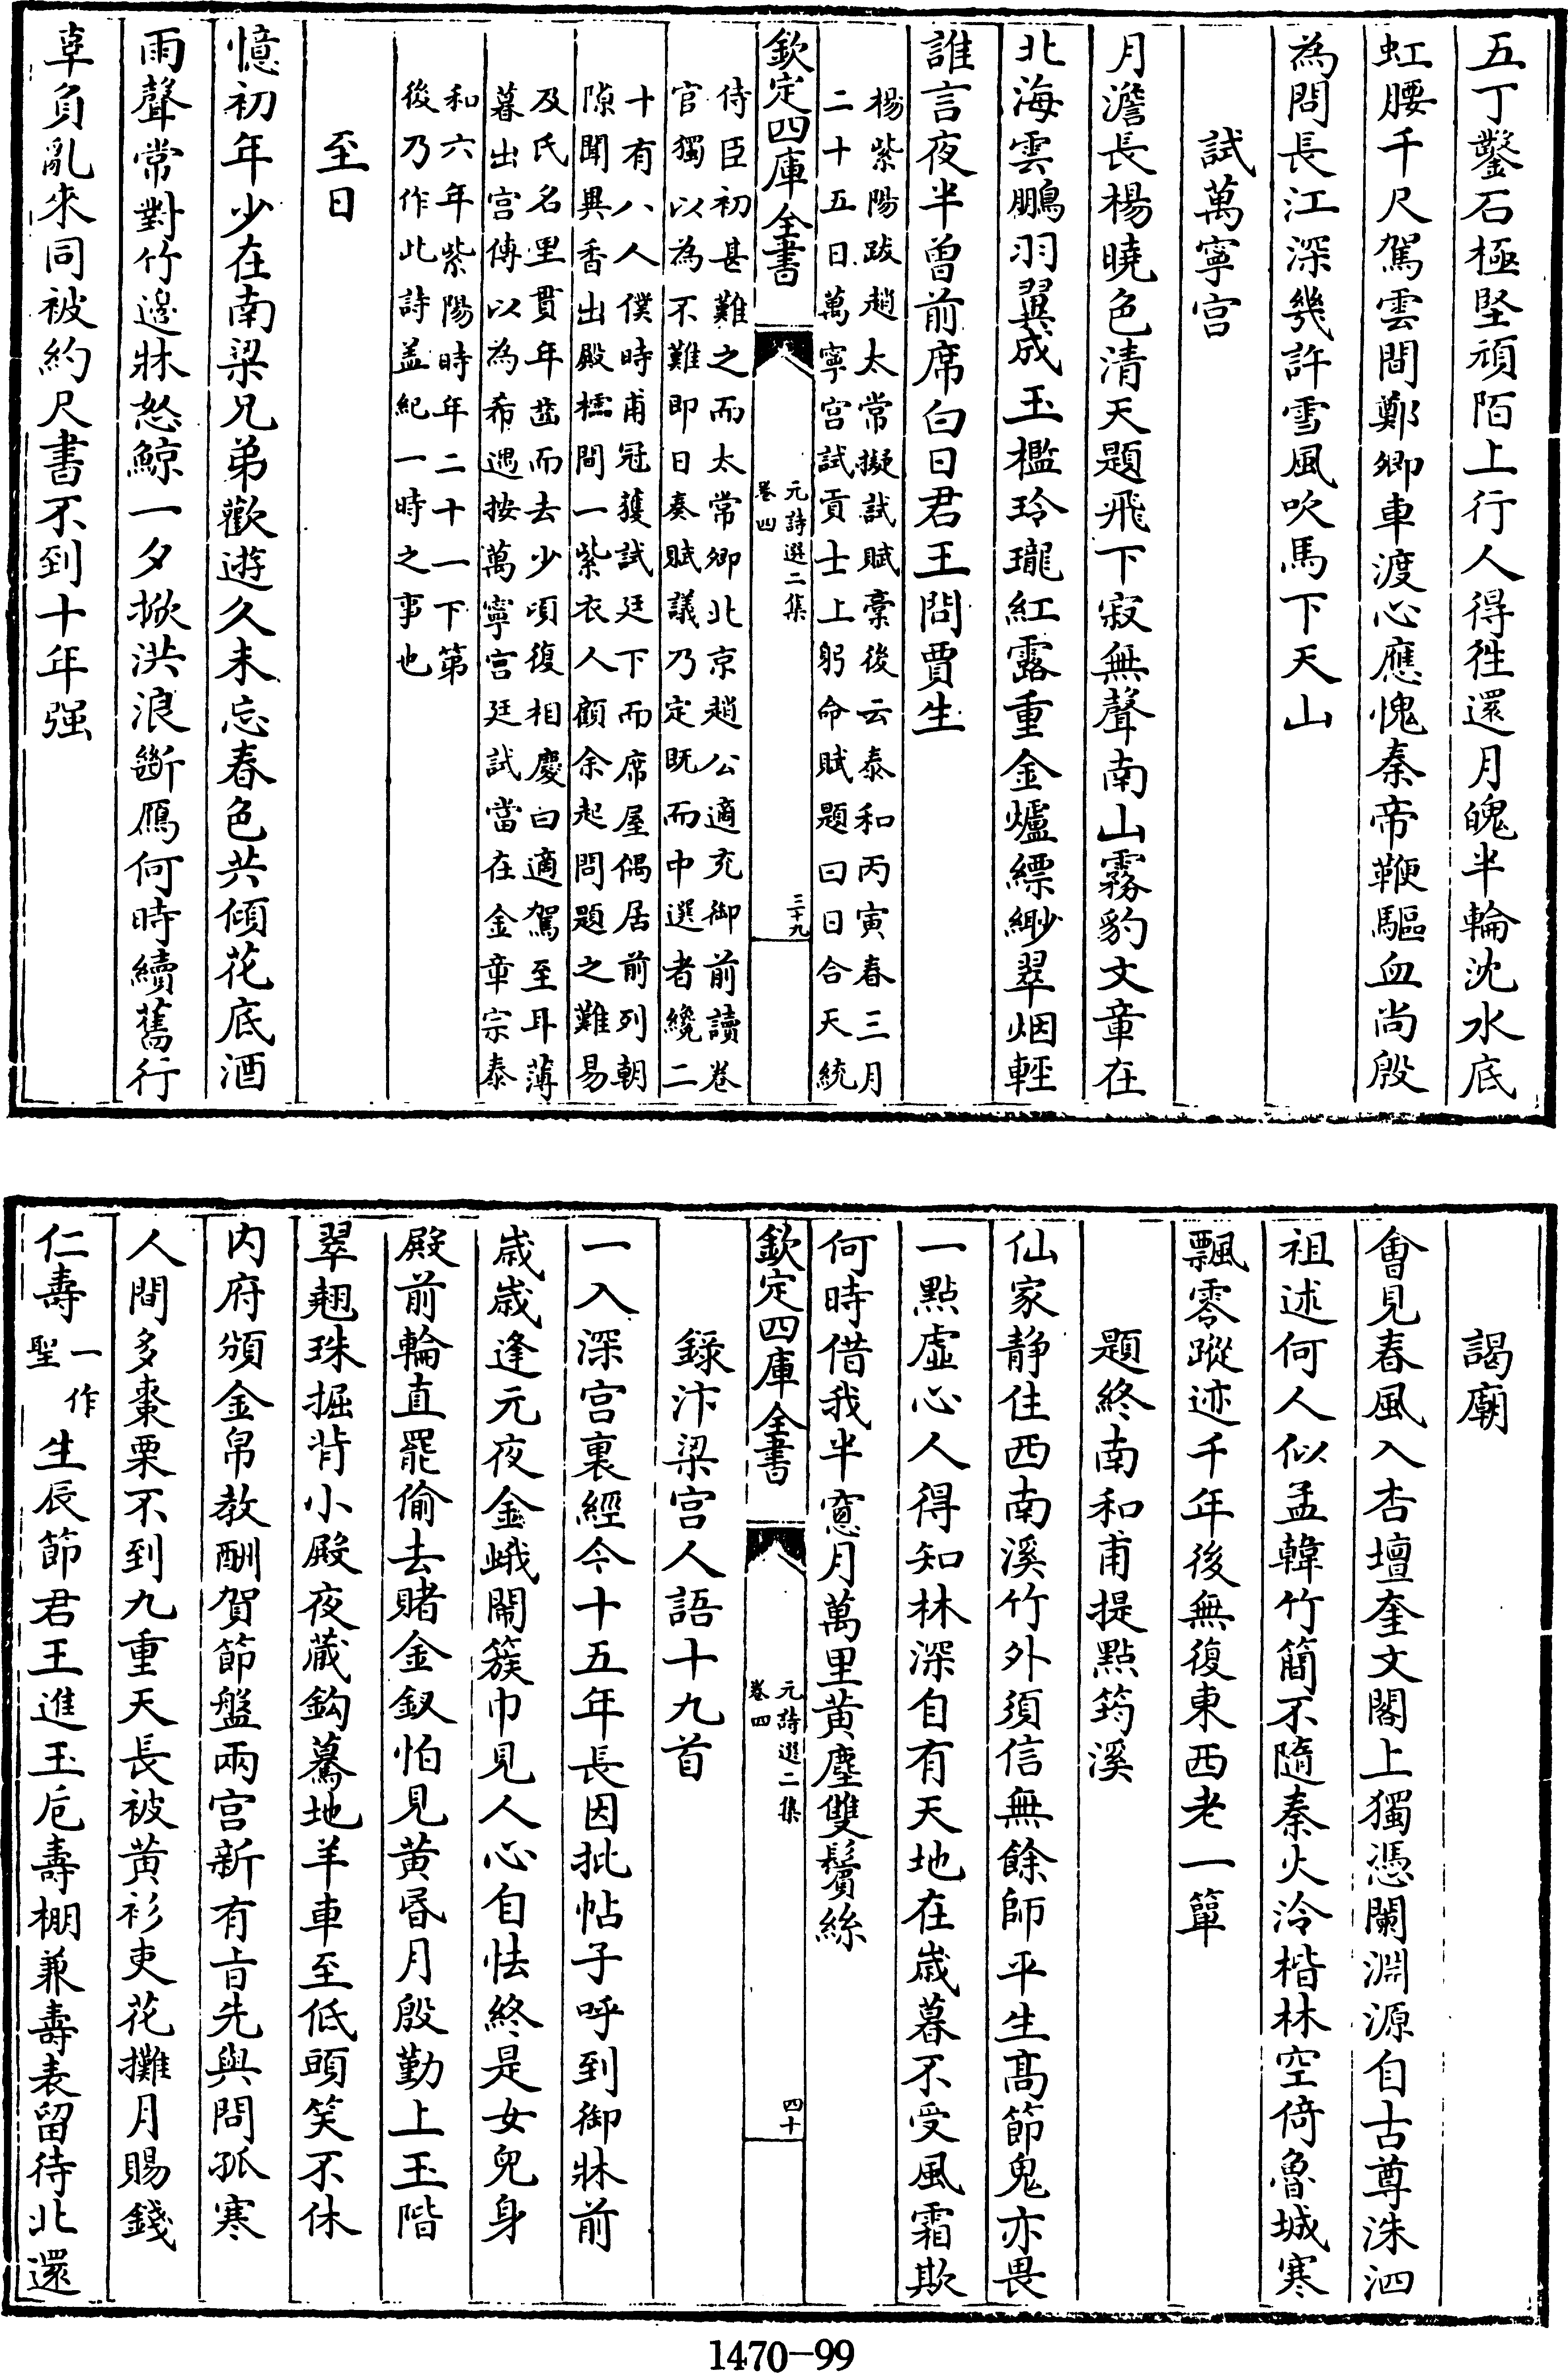 五丁鑿石極堅頑陌上行人得徃還月魄半輪沈水底
虹腰千尺駕雲間鄭卿車渡心應愧秦帝鞭驅血尚殷
為問長江深幾許雪風吹馬下天山
試萬寧宫
月澹長楊曉色清天題飛下寂無聲南山霧豹文章在
北海雲鵬羽翼成玉檻玲瓏紅露重金爐縹緲翠烟輕
誰言夜半曾前席白日君王問賈生
楊紫陽跋趙太常擬試賦藁後云泰和丙寅春三月
二十五日萬寧宫試貢士上躬命賦題曰日合天統
欽定四庫全書
元詩選二集
卷四
三十九
侍臣初甚難之而太常卿北京趙公適充御前讀卷
官獨以為不難即日奏賦議乃定既而中選者纔二
十有八人僕時甫冠獲試廷下而席屋偶居前列朝
隙聞異香出殿櫺間一紫衣人顧余起問題之難易
及氏名里貫年齒而去少頃復相慶曰適駕至耳薄
暮出宫傳以為希遇按萬寧宫廷試當在金章宗泰
和六年紫陽時年二十一下第
後乃作此詩盖紀一時之事也
至日
憶初年少在南梁兄弟歡遊久未忘春色共傾花底酒
雨聲常對竹邊牀怒鯨一夕掀洪浪斷鴈何時續舊行
辜負亂來同被約尺書不到十年强
謁廟
會見春風入杏壇奎文閣上獨憑闌淵源自古尊洙泗
祖述何人似孟韓竹簡不隨秦火冷楷林空倚魯城寒
飄零蹤迹千年後無復東西老一簞
題終南和甫提點筠溪
仙家静住西南溪竹外須信無餘師平生髙節鬼亦畏
一點虛心人得知林深自有天地在歲暮不受風霜欺
何時借我半窻月萬里黄塵雙鬢絲
欽定四庫全書
元詩選二集
卷四
四十
録汴梁宫人語十九首
一入深宫裏經今十五年長因批帖子呼到御牀前
歲歲逢元夜金蛾鬧簇巾見人心自怯終是女兒身
殿前輪直罷偷去賭金釵怕見黄昏月殷勤上玉階
翠翹珠掘背小殿夜蔵鈎驀地羊車至低頭笑不休
内府頒金帛教酬賀節盤兩宫新有旨先與問孤寒
人間多棗栗不到九重天長被黄衫吏花攤月賜錢
仁壽一作聖生辰節君王進玉巵壽棚兼壽表留待北還
1470-99